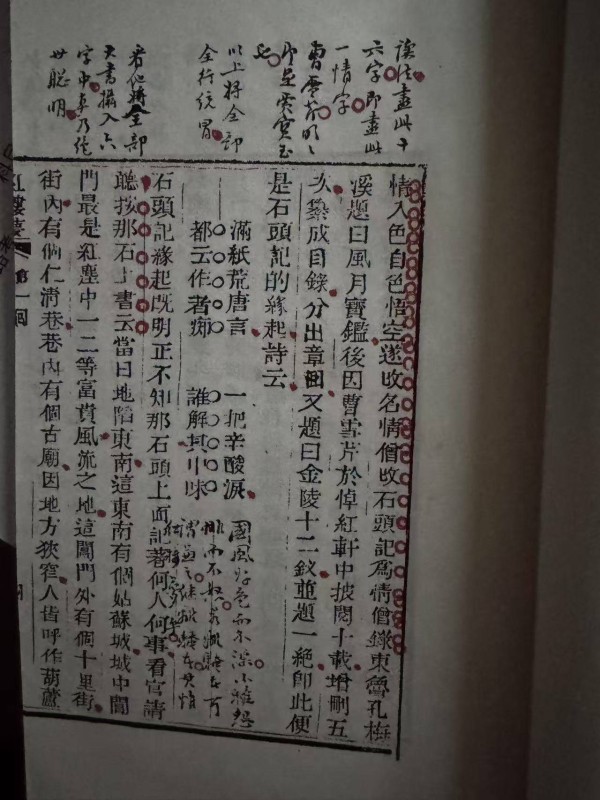 读法尽此十
六字即尽此
一情字
曹雪芹
以上将全部
全行统冒
若他将全部
大书摄入六
字中真乃绝
世聪明
情入色自色悟空遂改名情僧改石頭記爲情僧錄東魯孔梅
溪題曰風月寶鑑後因曹雪芹於悼紅軒中披閱十載增刪五
次纂成目錄分出章回又題曰金陵十二釵並題一絕卽此便
是石頭記的緣起詩云
滿紙荒唐言 一把辛酸淚
都云作者痴 誰解其中味
國風好色而不淫小雅怨
誹而不亂若離騷者可
謂兼之
石頭記緣起旣明正不知那石頭上面記著何人何事看官請
聽按那石上書云當日地陷東南這東南有個姑蘇城城中閶
門最是紅塵中一二等富貴風流之地這閶門外有個十里街
街內有個仁清巷巷內有個古廟因地方狹窄人皆呼作葫蘆
紅樓夢 第一回